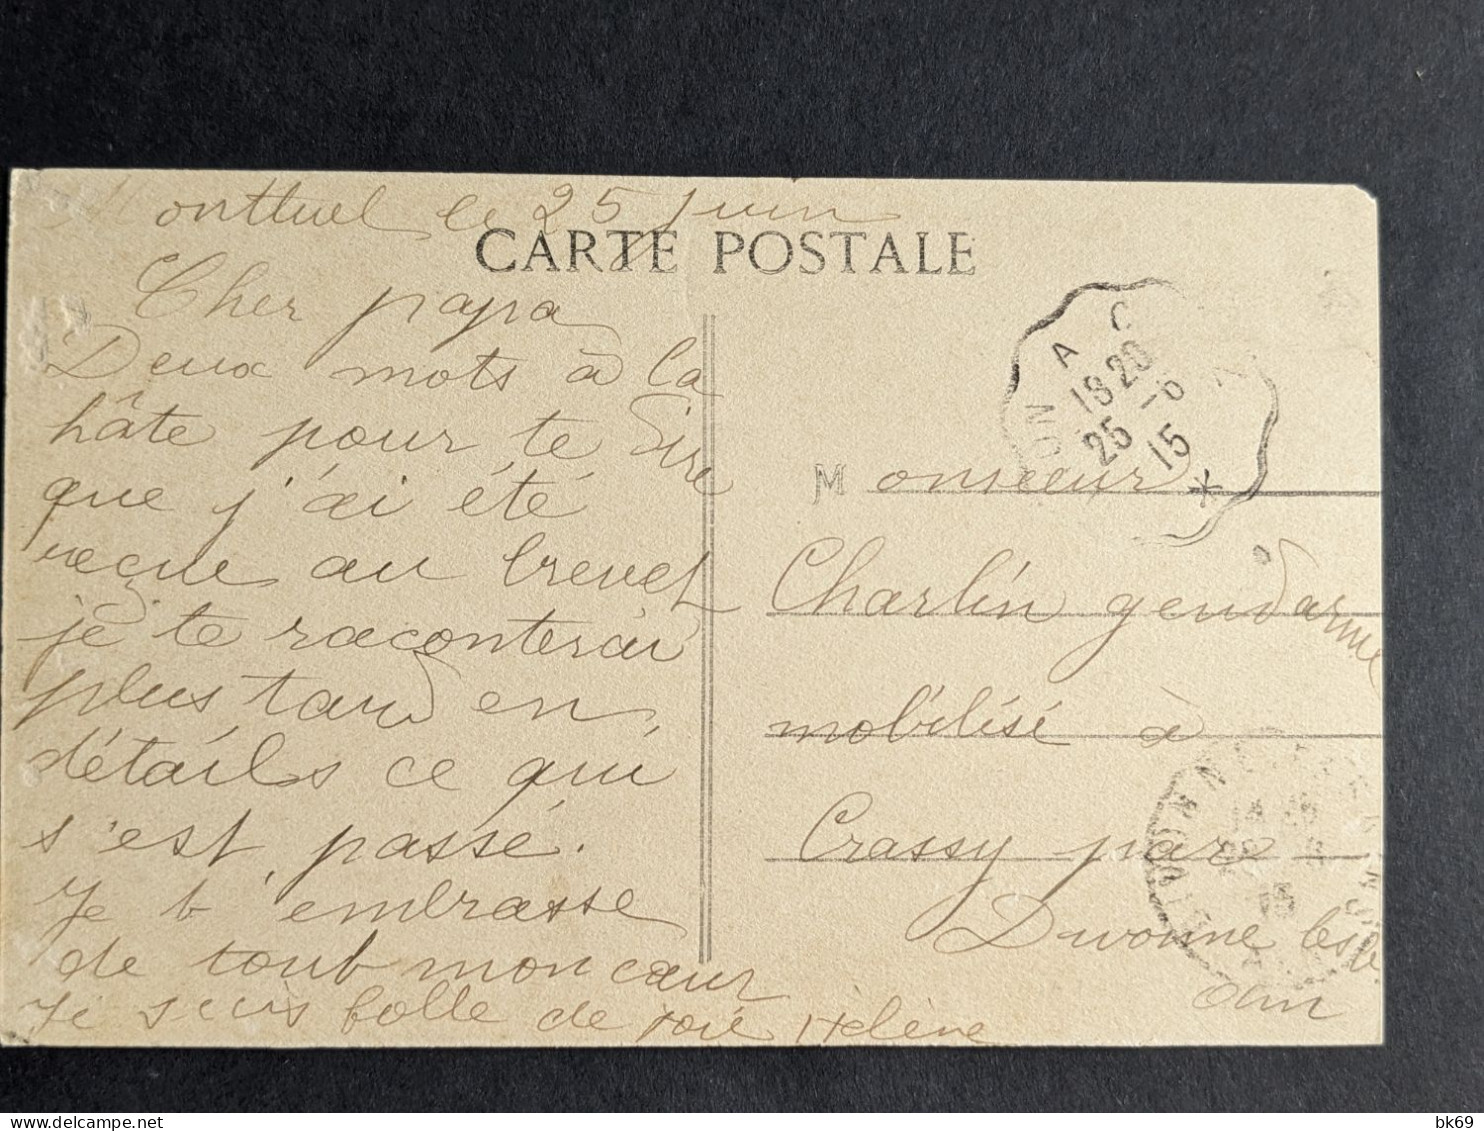 Montluel le 25 Juin
CARTE POSTALE
Cher papa
Deux mots à la
hâte pour te dire
que j'ai été
reçue au brevet
je te raconterai
plus tard en
détails ce qui
s'est passé.
Je t'embrasse
de tout mon cœur
Je suis folle de joie Hélène
ON A C
18 20
25 -6
15
*
Monsieur
Charlin gendarme
mobilisé à
Crassy par
Divonne les
Ain
bk69